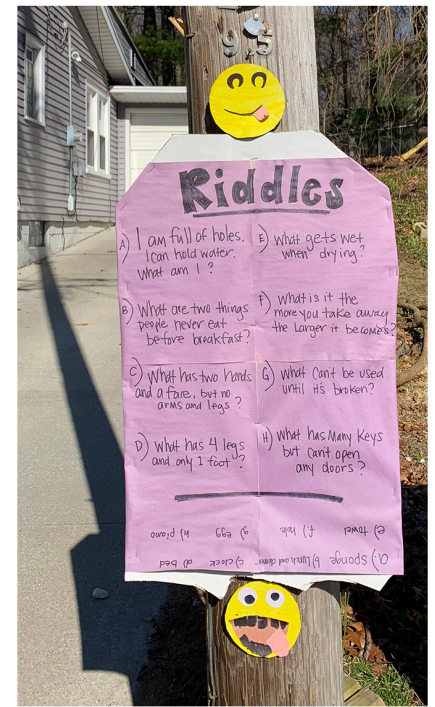 9 5
Riddles
A) I am full of holes.
I can hold water.
What am I ?
B) What are two things
people never eat
before breakfast?
C) What has two hands
and a face, but no
arms and legs ?
D) What has 4 legs
and only 1 foot ?
E) What gets wet
when drying?
F) What is it the
more you take away
the larger it becomes?
G) What can't be used
until it's broken?
H) What has Many Keys
but can't open
any doors ?
a.) sponge b) Lunch and dinner c) clock d) bed
e) towel f.) hole g) egg h) piano